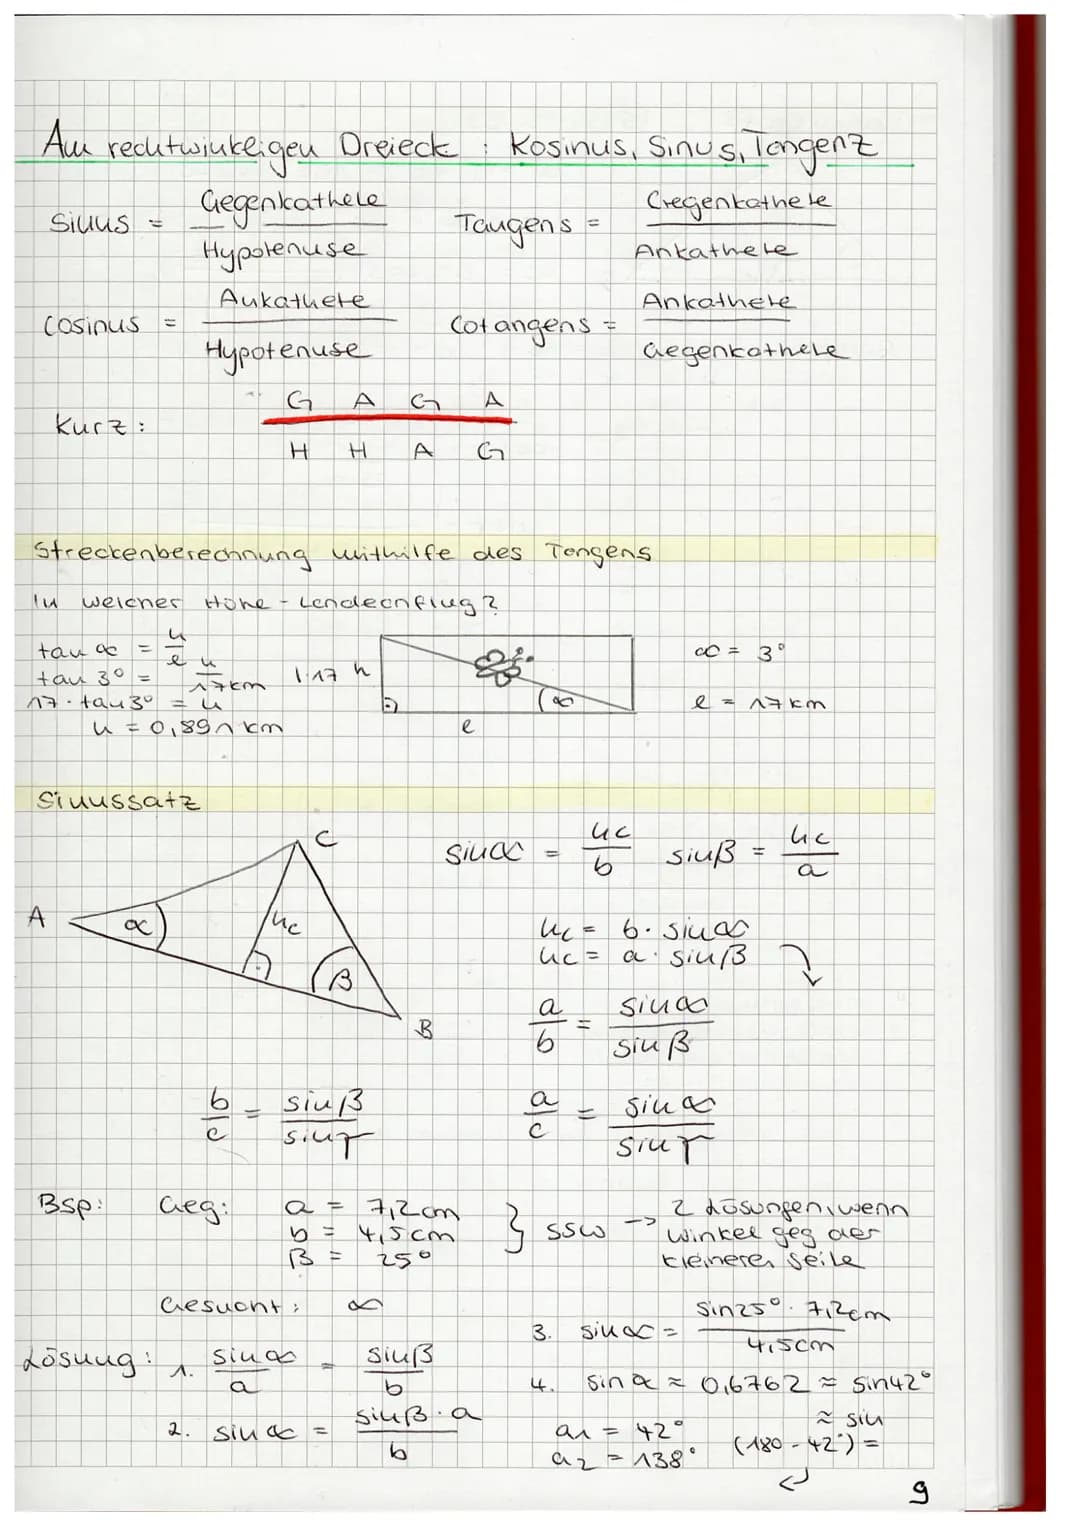 Am rechtwinkeligen Dreieck : Kosinus, Sinus, Tangenz
Sinus = Gegenkathete / Hypotenuse
Tangens = Gegenkathete / Ankathete
Cosinus = Ankathete / Hypotenuse
Cotangens = Ankathete / Gegenkathete
Kurz :
G A G A
H H A G
Streckenberechnung mithilfe des Tangens
In welcher Höhe - Landeanflug?
tan α = h/e
tan 3° = h/17km
17 · tan3° = h
h = 0,891 km
1.17 h
α
e
α = 3°
e = 17km
Sinussatz
A
C
B
α
hc
β
sinα = hc/b
sinβ = hc/a
hc = b · sinα
hc = a · sinβ
a/b = sinα/sinβ
b/c = sinβ/sinγ
a/c = sinα/sinγ
Bsp: Geg: a = 7,2cm
b = 4,5cm
β = 25°
} ssw -> 2 Lösungen, wenn
winkel geg der
kleineren Seite
Gesucht: α
Lösung: 1. sinα/a = sinβ/b
2. sinα = sinβ·a/b
3. sinα = sin25° · 7,2cm/4,5cm
4. sinα ≈ 0,6762 ≈ sin42°
≈ sin
(180 - 42°) =
a1 = 42°
a2 = 138°
9